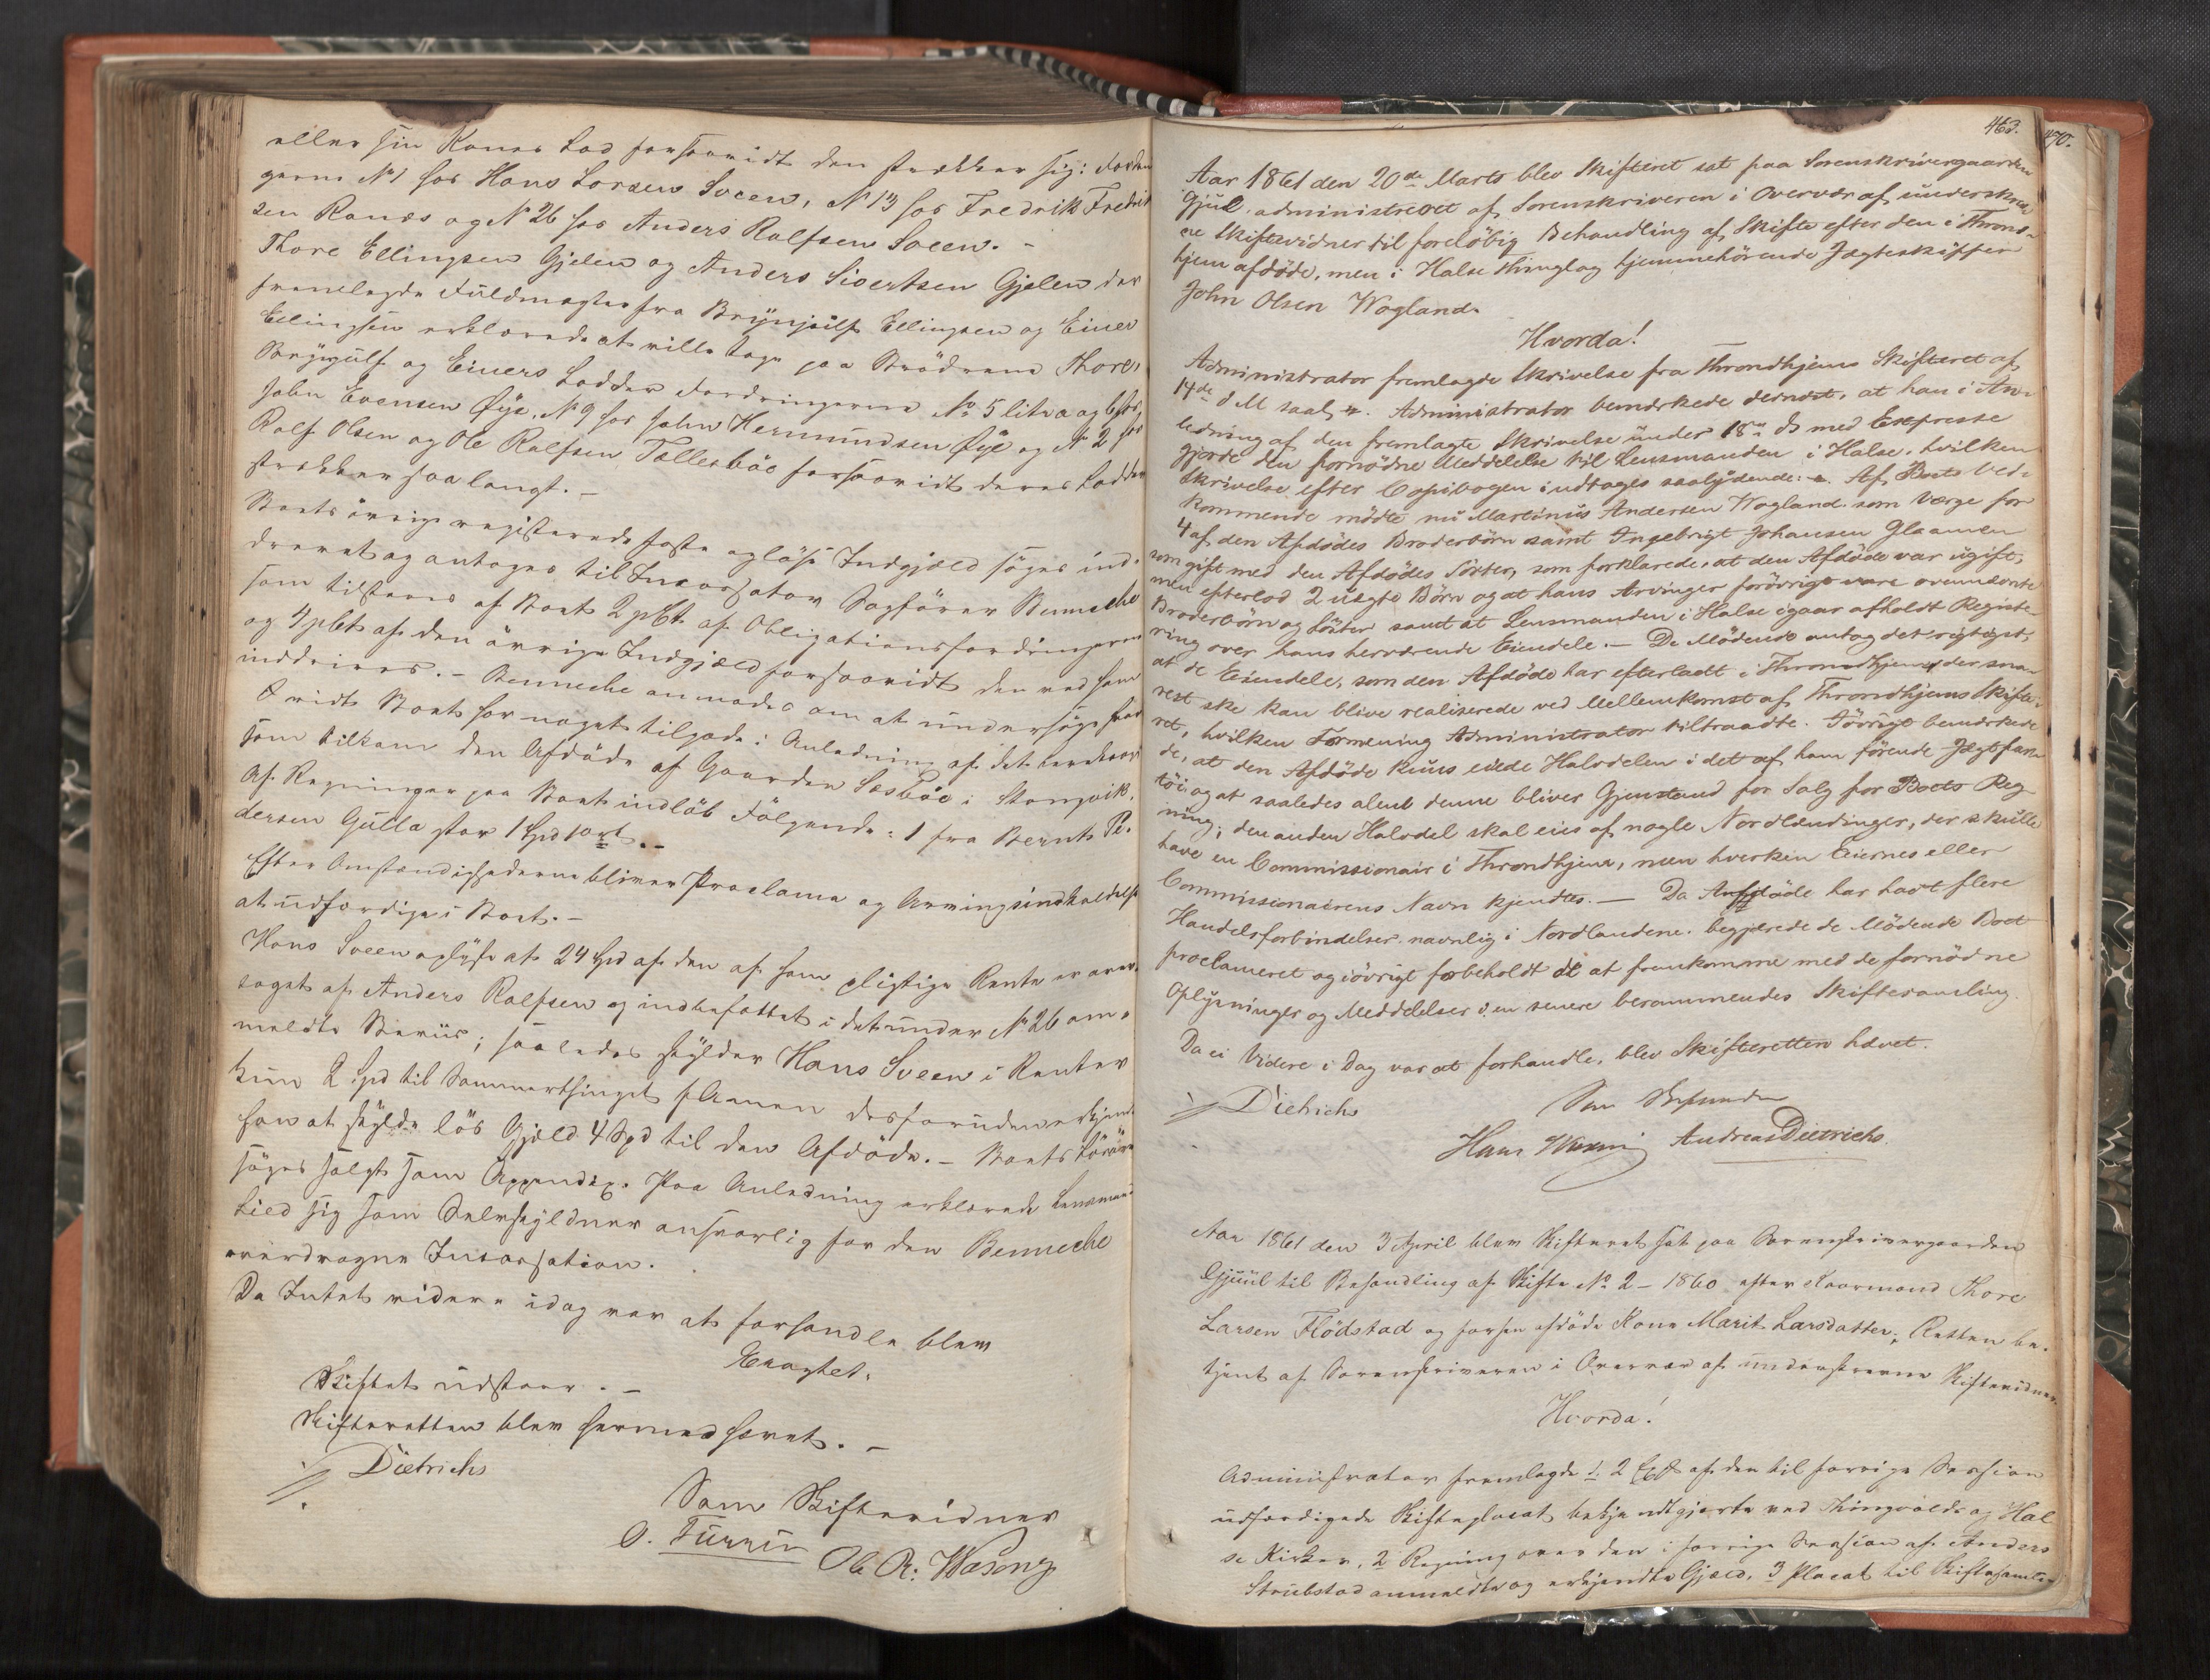 eller sin Kones Lod forsaavidt den strækker sig: Fordrin
gerne No 1 hos Hans Larsen Sveen, No 13 hos Fredrik Fredrik
sen Ranæs og No 26 hos Anders Rolfsen Sveen. -
Thore Ellingsen Gjelen og Anders Sivertsen Gjelen der
fremlagde Fuldmagter fra Brynjulf Ellingsen og Einer
Ellingsen erklærede at ville tage paa Brödrene Thores
Brynjulf og Einers Lodder Fordringerne No 5 litra a og b hos
John Evensen Øye, No 9 hos John Hermundsen Øye og No 2 hos
Rolf Olsen og Ole Rolfsen Tellesböe forsaavidt deres Lodder
strækker saa langt. -
Boets övrige registerede faste og löse Indgjæld söges ind-
drevet og antages til Incassator Sagförer Benneche
som tilstaaes af Boet 2 pCt. af Obligationsfordringerne
og 4 pCt. af den övrige Indgjæld forsaavidt den ved ham
inddrives. - Benneche anmodes om at undersöge hvor
vidt Boet har noget tilgode i Anledning af det
som tilkom den Afdöde af Gaarden Sæsböe i Stangvik.
Af Regninger paa Boet indlöb Fölgende: 1 fra Bernt Pe-
dersen Gulla stor 1 Spd 1 ort. -
Efter Omstændighederne bliver Proclama og Arvingsindkaldelse
at udfærdige i Boet. -
Hans Sveen oplyste at 24 Spd af den af ham pligtige Rente er over-
taget af Anders Rolfsen og indbefattet i det under No 26 an-
meldte Beviis; saaledes skylder Hans Sveen i Renter
kun 2 Spd til Sommerthinget dA men desforuden erkjendte
han at skylde lös Gjæld 4 Spd til den Afdöde. - Boets Lösöre
söges solgt som Appendix. Paa Anledning erklærede Lensmand
Lied sig som Selvskyldner ansvarlig for den Benneche
overdragne Incassation.
Da Intet videre idag var at forhandle blev
Eragtet,
Skiftet udstaaer. -
Skifteretten blev hermed hævet. -
Dietrichs
Som Skiftevidner
O. Furru
Ole A: Wasong

463.
470.
Aar 1861 den 20de Marts blev Skifteret sat paa Sorenskrivergaarden
Gjul, administreret af Sorenskriveren i Overvær af underskrev-
ne Skiftevidner til foreløbig Behandling af Skifte efter den i Thrond-
hjem afdöde, men i Halse Thinglag hjemmehörende Jægteskipper
John Olsen Wagland.
Hvorda!
Administrator fremlagde Skrivelse fra Throndhjems Skifteret af
14de d M saal. Administrator bemærkede dernæst, at han i An-
ledning af den fremlagte Skrivelse under 18de ds med Expresse
gjorde den fornödne Meddelelse til Lensmanden i Halse, hvilken
Skrivelse efter Copibogen indtages saalydende: Af Boets Ved-
kommende mödte nu Martinus Andersen Wagland som Værge for
4 af den Afdödes Broderbörn samt Ingebrigt Johansen Glaamen
som gift med den Afdödes Söster, som forklarede, at den Afdöde var ugift,
men efterlod 2 uægte Börn og at hans Arvinger forövrigt vare ovennævnte
Broderbörn og Söster samt at Lensmanden i Halse igaar afholdt Registe-
ring over hans herværende Eiendele. - De Mödende antog det rigtigst,
at de Eiendele, som den Afdöde har efterladt i Throndhjem, der sna-
rest ske kan blive realiserede ved Mellemkomst af Throndhjems Skifte-
ret, hvilken Formening Administrator tiltraadte. Iövrigt bemærkede
de, at den Afdöde kuns eiede Halvdelen i det af ham förende Jægtfar-
töi og at saaledes alene denne bliver Gjenstand for Salg for Boets Reg-
ning; den anden Halvdel skal eies af nogle Nordlændinger, der skulle
have en Commissionair i Throndhjem, men hverken Eiernes eller
Commissionairens Navn kjendtes. - Da Afdöde har havt flere
Handelsforbindelser, navnlig i Nordlandene, begjærede de Mödende Boet
proclameret og iövrigt forbeholdt at fremkomme med de fornödne
Oplysninger og Meddelelser i en senere berammendes Skiftesamling.
Da ei Videre i Dag var at forhandle, blev Skifteretten hævet.
Dietrichs
Som Skiftevidner
Hans Andreas Dietrichs

Aar 1861 den 3 April blev Skifteret sat paa Sorenskrivergaarden
Gjuul til Behandling af Skifte No 2 - 1860 efter Kaarmand Thore
Larsen Flödstad og forhen afdöde Kone Marit Larsdatter, Retten be-
tjent af Sorenskriveren i Overvær af underskrevne Skiftevidner.
Hvorda!
Administrator fremlagde 1. 2 Expl af den til forrige Session
udfærdigede Skifteplacat bekjendtgjorte ved Thingvolds og Hal-
se Kirker, 2 Regning over den i forrige Session af Anders
Strubstad anmeldte og erkjendte Gjæld, 3 Placat til Skiftesamling